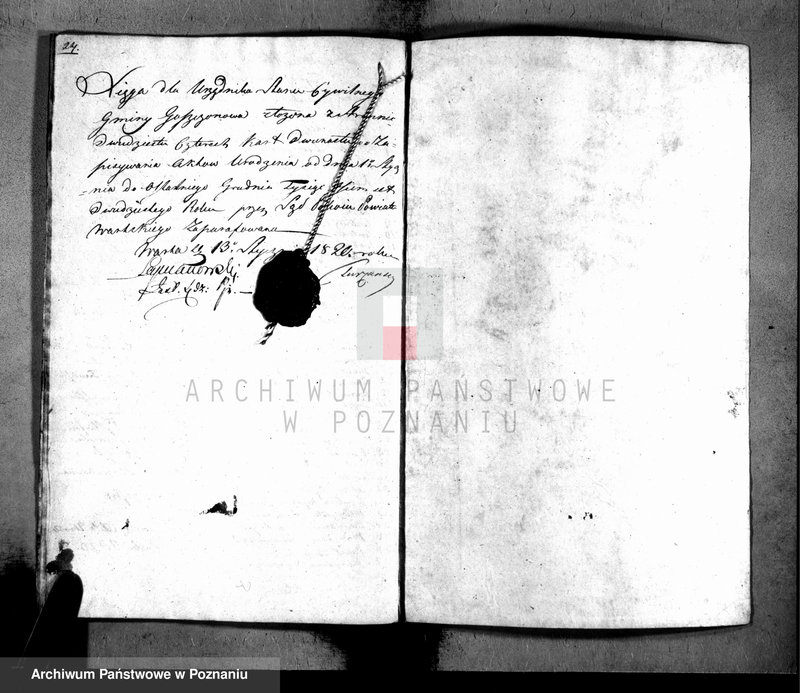 24.
Xięga dla Urzędnika Stanu Cywilnego
Gminy Goszczonowa złożona
dwudziestu Czterech kart
pisywania Aktów Urodzenia od dnia 1º Stycz
nia do ostatniego Grudnia Tysiąc Ośmset
dwudziestego Roku przez Sąd Pokoiu Powiatu
Wartskiego Zaparafowana
Warta d. 13º Stycznia 1820. roku
ARCHIWUM PAŃSTWOWE
W POZNANIU
Archiwum Państwowe w Poznaniu